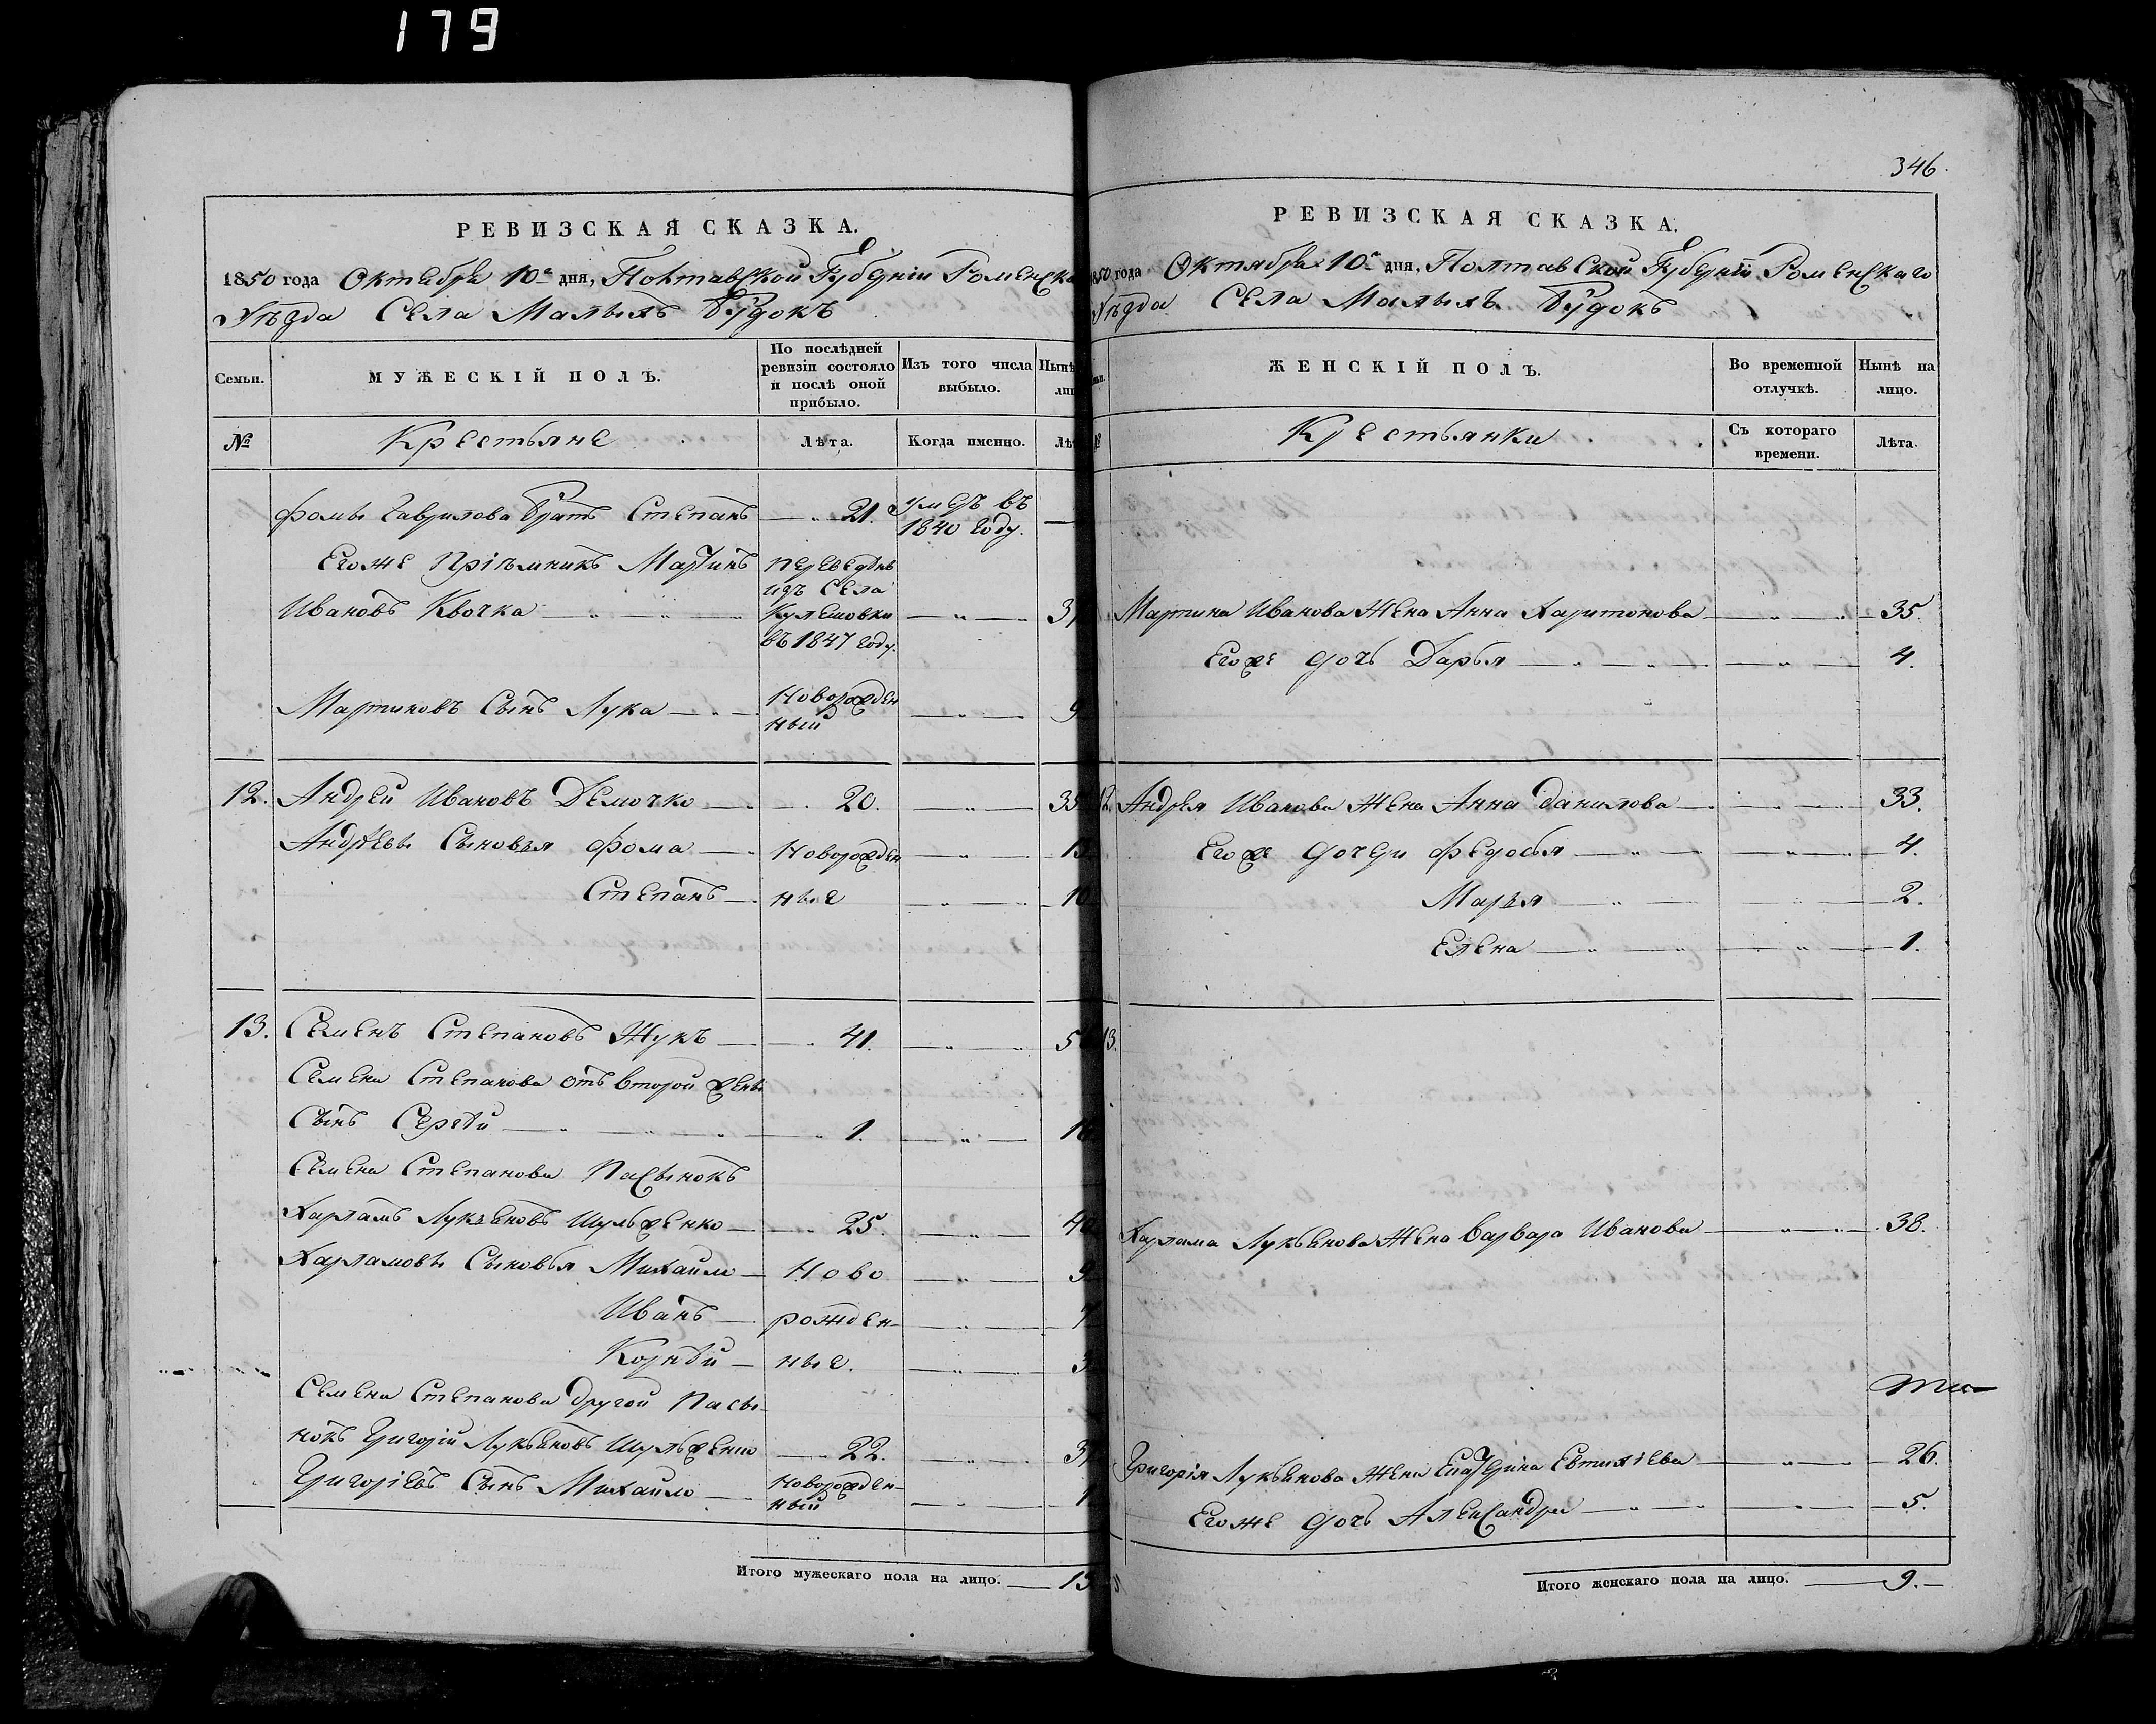 179
РЕВИЗСКАЯ СКАЗКА.
1850 года Октября 10го дня, Полтавской Губерніи Роменска
Уѣзда Села Малыхъ Будокъ
Семьи.
МУЖЕСКІЙ ПОЛЪ.
По послѣдней ревизіи состояло и послѣ оной прибыло.
Изъ того числа выбыло.
Нынѣ
лиц
№
Крестьяне
Лѣта.
Когда именно.
Лѣ
Фомы Гаврилова братъ Степанъ 21. Умеръ въ 1840 году.
Егоже пріемникъ Мартинъ
Ивановъ Квочка
переведенъ
изъ Села
Кулешовки
въ 1847 году.
Мартиновъ Сынъ Лука Новорожденный 9
12. Андрей Ивановъ Демочко 20. 35
Андрѣевы Сыновья Фома Новорожден
Степанъ ные 10
13. Семенъ Степановъ Жукъ 41.
Семена Степанова отъ второй жены
Сынъ Сергѣй 1.
Семена Степанова пасынокъ
Харламъ Лукьяновъ Шульженко 25. 40
Харламовы Сыновья Михайло Ново 9
Иванъ рожден- 7
Корнѣй ные. 3
Семена Степанова другой пасы-
нокъ Григорій Лукьяновъ Шульженко 22.
Григоріевъ Сынъ Михайло Новорожден-ный 1
Итого мужескаго пола на лицо. 13
346.
РЕВИЗСКАЯ СКАЗКА.
1850 года Октября 10го дня, Полтавской Губерніи Роменскаго
Уѣзда Села Малыхъ Будокъ
ЖЕНСКІЙ ПОЛЪ.
Во временной отлучкѣ.
Нынѣ на лицо.
№
Крестьянки
Съ котораго времени.
Лѣта.
Мартина Иванова жена Анна Харитонова 35.
Егоже дочь Дарья 4.
12. Андрея Иванова жена Анна Данилова 33.
Егоже дочери Федосья 4.
Марья 2.
Елена 1.
13.
Харлама Лукьянова жена Варвара Иванова 38.
Григорія Лукьянова жена Екатерина Евтихіева 26.
Егоже дочь Александра 5.
Итого женскаго пола на лицо. 9.